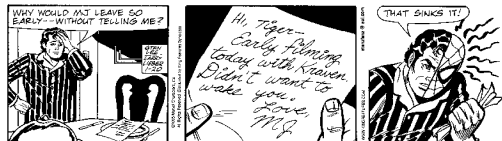 WHY WOULD MJ LEAVE SO
EARLY--WITHOUT TELLING ME?
STAN
LEE
LARRY
LIEBER
1-20
Hi, Tiger--
Early filming
today with Kraven.
Didn't want to
wake you.
Love,
MJ
THAT SINKS IT!